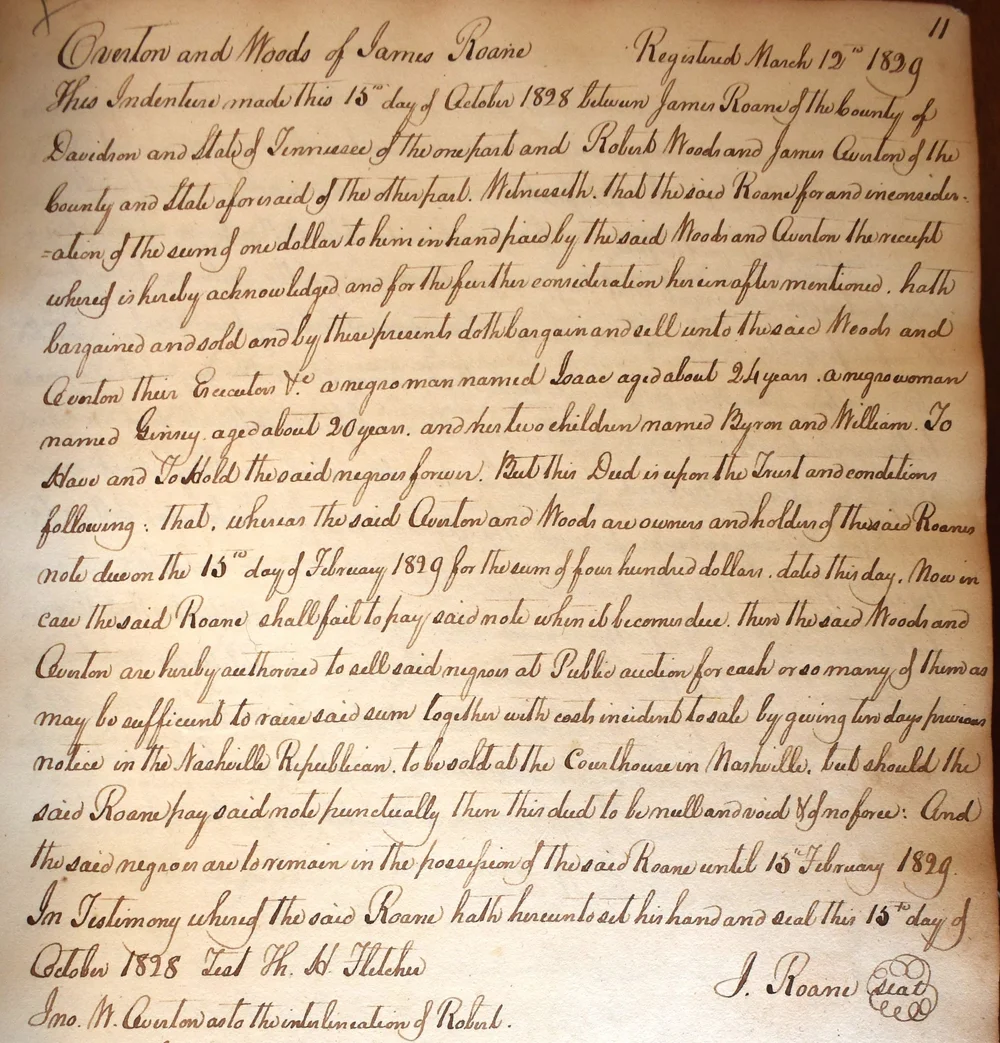 11
Overton and Woods of James Roane Registered March 12th 1829
This Indenture made this 15th day of October 1828 between James Roane of the County of
Davidson and State of Tennessee of the one part and Robert Woods and James Overton of the
County and State aforesaid of the other part. Witnesseth. that the said Roane for and in consider-
=ation of the sum of one dollar to him in hand paid by the said Woods and Overton the receipt
whereof is hereby acknowledged and for the further consideration herein after mentioned. hath
bargained and sold and by these presents doth bargain and sell unto the said Woods and
Overton their Executors &c a negro man named Isaac aged about 24 years. a negro woman
named Ginsey. aged about 20 years. and her two children named Byron and William. To
Have and To Hold the said negroes forever. But this Deed is upon the Trust and conditions
following: that, whereas the said Overton and Woods are owners and holders of the said Roanes
note due on the 15th day of February 1829 for the sum of four hundred dollars. dated this day. Now in
case the said Roane shall fail to pay said note when it becomes due. then the said Woods and
Overton are hereby authorized to sell said negroes at Public auction for cash or so many of them as
may be sufficient to raise said sum together with costs incident to sale by giving ten days previous
notice in the Nashville Republican. to be sold at the Courthouse in Nashville. but should the
said Roane pay said note punctually then this deed to be null and void & of no force: And
the said negroes are to remain in the possession of the said Roane until 15th February 1829.
In Testimony whereof the said Roane hath hereunto set his hand and seal this 15th day of
October 1828 Test Th. H. Fletcher J. Roane seal
Jno. W. Overton as to the interlineation of Robert.